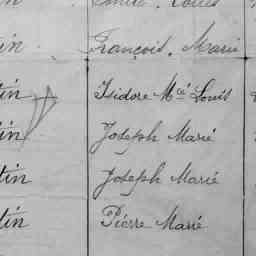 Emile. Louis
tin François. Marie
tin Isidore Mie Louis
tin Joseph Marie
tin Joseph Marie
tin Pierre Marie